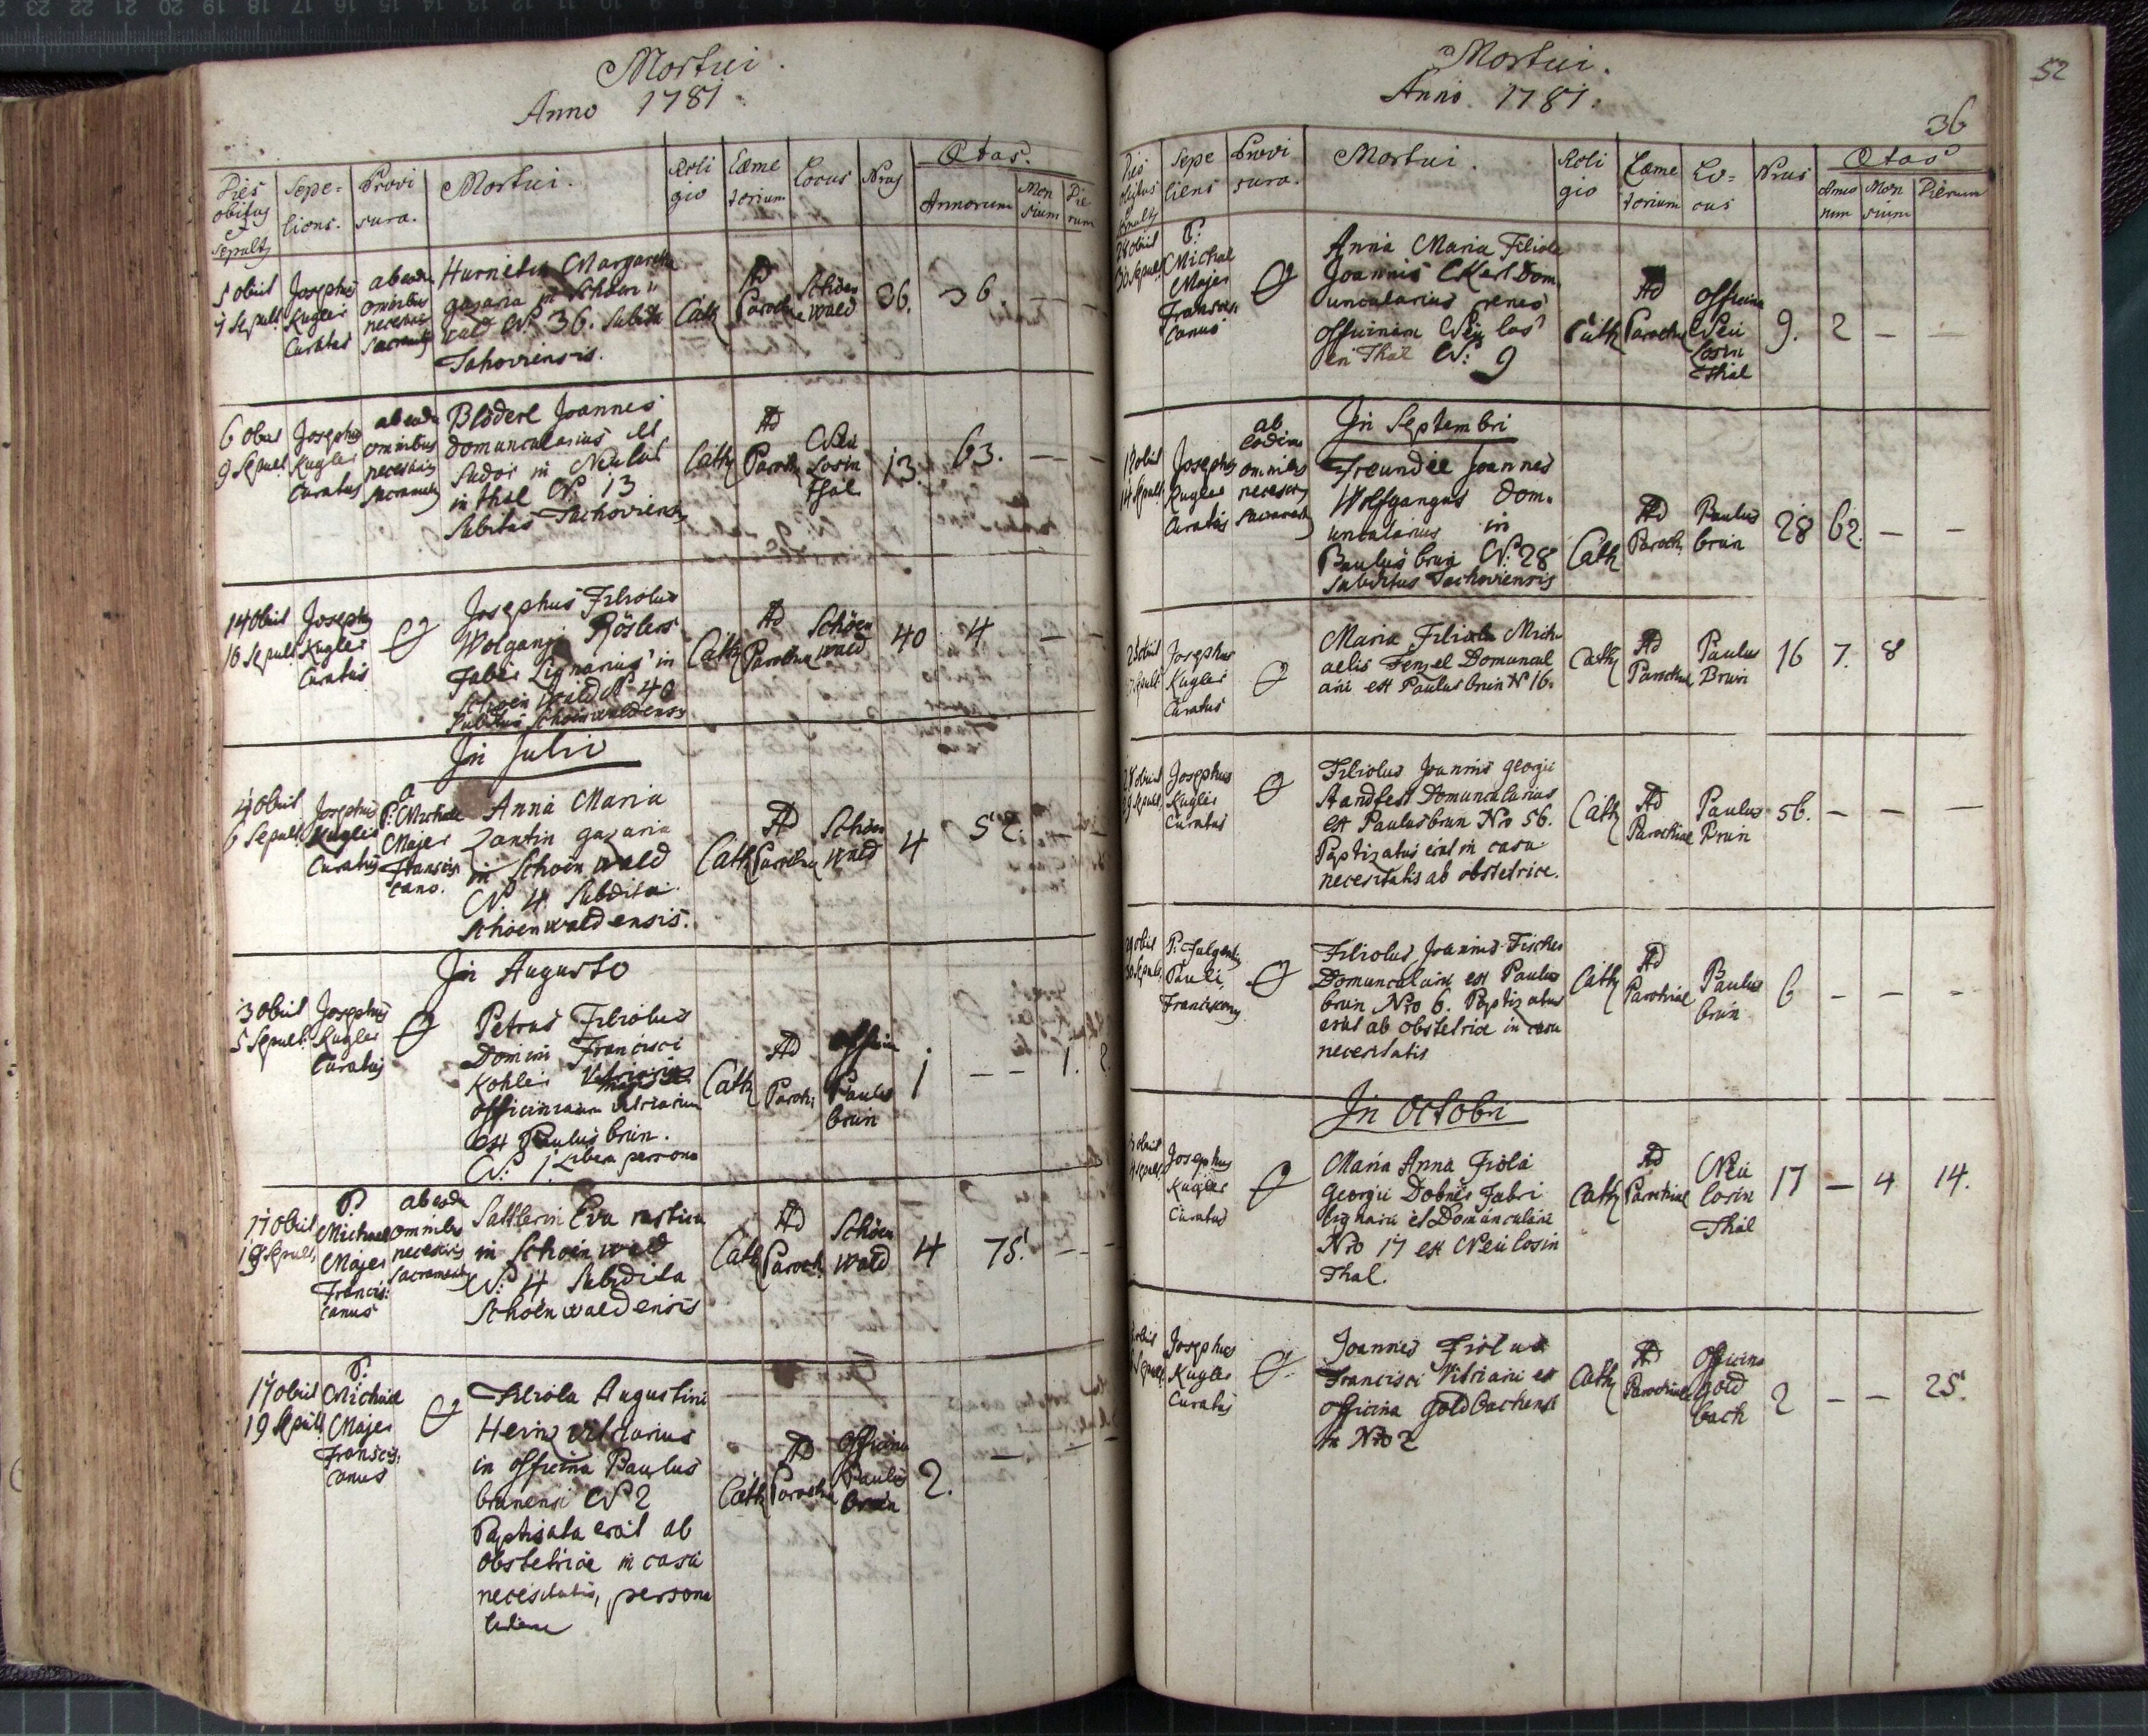 Mortui.
Anno 1781.
Dies obitus et Sepultz
Sepe=lions.
Provisura.
Mortui.
Religio
Cæmetorium
Locus
Nrus
Ætas.
Annorum
Mensium
Dierum
5 obiit
7 Sepult
Josephus
Kugler
Curatus
ab eodem
omnibus
necessariis
Sacramentz
Margareta
gazaria in Schoen
wald N: 36. Subdita
Tahoviensis.
Cath
Ad
Parochia
Schoen
wald
36.
36.
— —
6 obiit
9 Sepult
Josephus
Kugler
Curatus
ab eodem
omnibus
necessariis
Sacramentz
Bloderl Joannes
domuncularius et
Sudor in Neulos
in thal N: 13
Subitus Tachoviensis
Cath
Ad
Paroch
Neu
Losin
thal
13.
63.
— —
14 obiit
16 Sepult
Josephus
Kugler
Curatus
Josephus Filiolus
Wolgangi Röslers
Faber Lignarius in
Schoen wald N: 40
Subitus Schoenwaldensis
Cath
Ad
Parochia
Schöen
wald
40
4
— —
In Julio
4 obiit
6 Sepult
Josephus
Kugler
Curatus
a
P: Michale
Majer
Francis
cano.
Anna Maria
Zantin gazaria
in Schoen wald
N: 4 Subdita
Schoenwaldensis.
Cath
Ad
Parochia
Schöen
wald
4
52.
In Augusto
3 obiit
5 Sepult
Josephus
Kugler
Curatus
Petrus Filiolus
Domini Francisci
Kohler
officinarum vitriarium
ex Paulus brun.
N: 1. Libera persona
Cath
Ad
Paroch:
officin
Paulus
brun
1
— —
1.
2.
17 obiit
19 Sepult,
P:
Michael
Majer
Francis:
canus
ab eodem
omnibus
necessariis
Sacramentz
Sattlerin Eva rustica
in Schoin wald
N: 4 Subdita
Schoenwaldensis
Cath
Ad
Paroch
Schöen
wald
4
75.
— —
17 obiit
19 Sepult
P:
Michael
Majer
Francis,
canus
Filiola Augustini
Herin vitriarius
in officina Paulus
brunensi N 2
Paptisata erat ab
obstetrice in casu
necesitatis, persona
libera
Cath
Ad
Parochia
Officina
Paulus
brun
2.
— —
52
Mortui.
Anno 1781.
36
Dies obitus et Sepultz
Sepeliens
Provisura.
Mortui.
Religio
Cæmetorium
Lo=cus
Nrus
Ætas
Annorum
Mensium
Dierum
28 obiit
30 Sepult
P:
Michal
Majer
Francis
canus
Anna Maria Filiola
Joannis Ekerl Dom
uncularius penes
officinam Neu Los
en Thal N: 9
Cath
Ad
Paroch
officina
Neu
Losin
Thal
9.
2
— —
In Septembri
12 obiit
14 Sepult
Josephus
Kugler
Curatus
ab
eodem
omnibus
necesariis
Sacramentz
Freundll Joannes
Wolfgangus Dom=
uncularius in
Paulus brun N: 28
Subditus Tachoviensis
Cath
Ad
Paroch
Paulus
brun
28
62.
— —
obiit
Sepult
Josephus
Kugler
Curatus
Maria Filiola Mich
aelis Fenzel Domuncul
arii ex Paulus brun N 16.
Cath
Ad
Parochiae
Paulus
Brun
16
7.
8
28 obiit
29 Sepult
Josephus
Kugler
Curatus
Filiolus Joannis georgii
Standfest Domuncularius
ex Paulusbrun Nro 56.
Paptizatus erat in casu
necesitatis ab obstetrice.
Cath
Ad
Parochiae
Paulus
Brun
56.
— — —
29 obiit
30 Sepult
P: Fulgentz
Pauli,
Franciscang
Filiolus Joannis Fischer
Domuncularii ex Paulus
brun Nro 6. Paptizatus
erat ab obstetrice in casu
necesitatis
Cath
Ad
Parochiae
Paulus
brun
6
— — —
In Octobri
obiit
Sepult
Josephus
Kugler
Curatus
Maria Anna Fiola
Georgii Dobner Fabri
lignarii et Domuncularii
Nro 17 ex Neu losin
Thal.
Cath
Ad
Parochiae
Neu
losin
Thal
17
—
4
14.
obiit
Sepult
Josephus
Kugler
Curatus
Joannes Fiolus
Francisci Vitriarii ex
officina Goldbachensi
in Nro 2
Cath
Ad
Parochiae
Officina
gold
bach
2
— —
25.